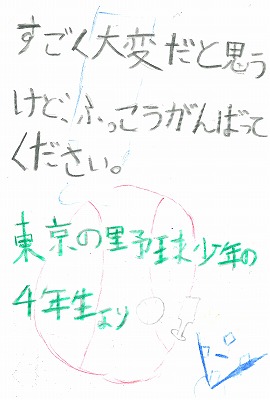 すごく大変だと思う
けど、ふっこうがんばって
ください。
東京の野球少年の
4年生より